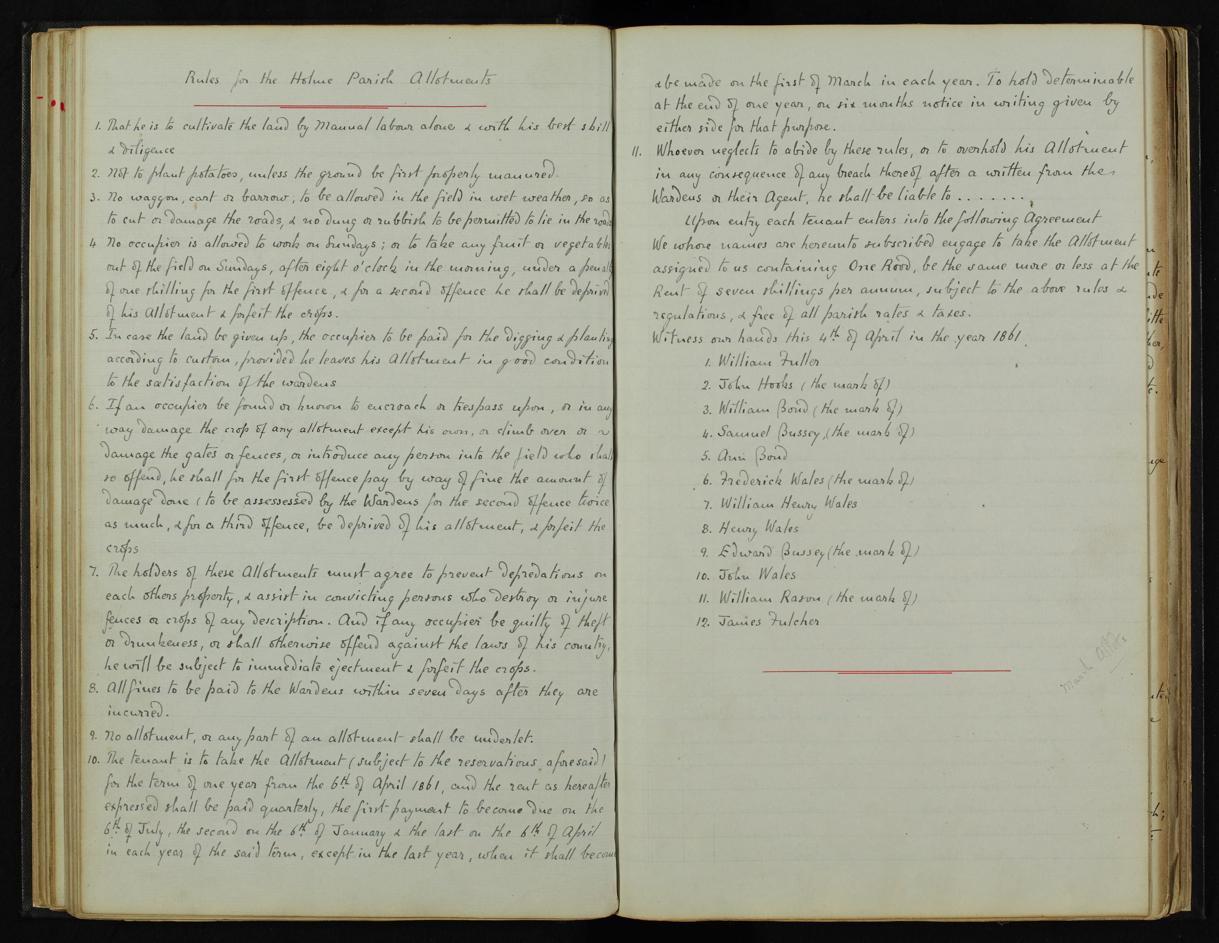 Rules for the Holme Parish Allotments
1. That he is to cultivate the land by Manual labour alone & with his best skill
& diligence
2. Not to plant potatoes, unless the ground be first properly manured.
3. No waggon, cart or barrow, to be allowed in the field in wet weather, so as
to cut or damage the roads, & no dung or rubbish to be permitted to lie in the road
4 No occupier is allowed to work on Sundays; or to take any fruit or vegetable
out of the field on Sundays, after eight o'clock in the morning, under a penal
of one shilling for the first offence, & for a second offence he shall be deprived
of his Allotment & forfeit the crops.
5. In case the land be given up, the occupier to be paid for the digging & planting
according to custom, provided he leaves his Allotment in good condition
to the satisfaction of the wardens
6. If an occupier be found or known to encroach or trespass upon, or in any
way damage the crop of any allotment except his own, or climb over or
damage the gates or fences, or introduce any person into the field who shall
so offend, he shall for the first offence pay by way of fine the amount of
damage done (to be assessessed by the Wardens for the second offence twice
as much, & for a third offence, be deprived of his allotment, & forfeit the
crops
7. The holders of these Allotments must agree to prevent depredations on
each others property, & assist in convicting persons who destroy or injure
fences or crops of any description. And if any occupier be guilty of theft
or drunkeness, or shall otherwise offend against the laws of his country,
he will be subject to immediate ejectment & forfeit the crops.
8. All fines to be paid to the Wardens within seven days after they are
incurred.
9. No allotment, or any part of an allotment shall be underlet.
10. The tenant is to take the Allotment (subject to the reservations aforesaid)
for the term of one year from the 6th of April 1861, and the rent as hereafter
expressed shall be paid quarterly, the first payment to become due on the
6th of July, the second on the 6th of January & the last on the 6th of April
in each year of the said term, except in the last year, when it shall become
& be made on the first of March in each year. To hold determinable
at the end of one year, on six months notice in writing given by
either side for that purpose.
11. Whoever neglects to abide by these rules, or to overhold his Allotment
in any consequence of any breach thereof after a written from the
Wardens or their Agent, he shall be liable to . . . . . . . .
Upon entry each tenant enters into the following Agreement
We whose names are hereunto subscribed engage to take the Allotment
assigned to us containing One Rood, be the same more or less at the
Rent of seven shillings per annum, subject to the above rules &
regulations, & free of all parish rates & taxes.
Witness our hands this 4th of April in the year 1861.
1. William Fuller
2. John Hooks (the mark of)
3. William Bond (the mark of)
4. Samuel Bussey (the mark of)
5. Ann Bond
6. Frederick Wales (the mark of)
7. William Henry Wales
8. Henry Wales
9. Edward Bussey (the mark of)
10. John Wales
11. William Rason (the mark of)
12. James Fulcher